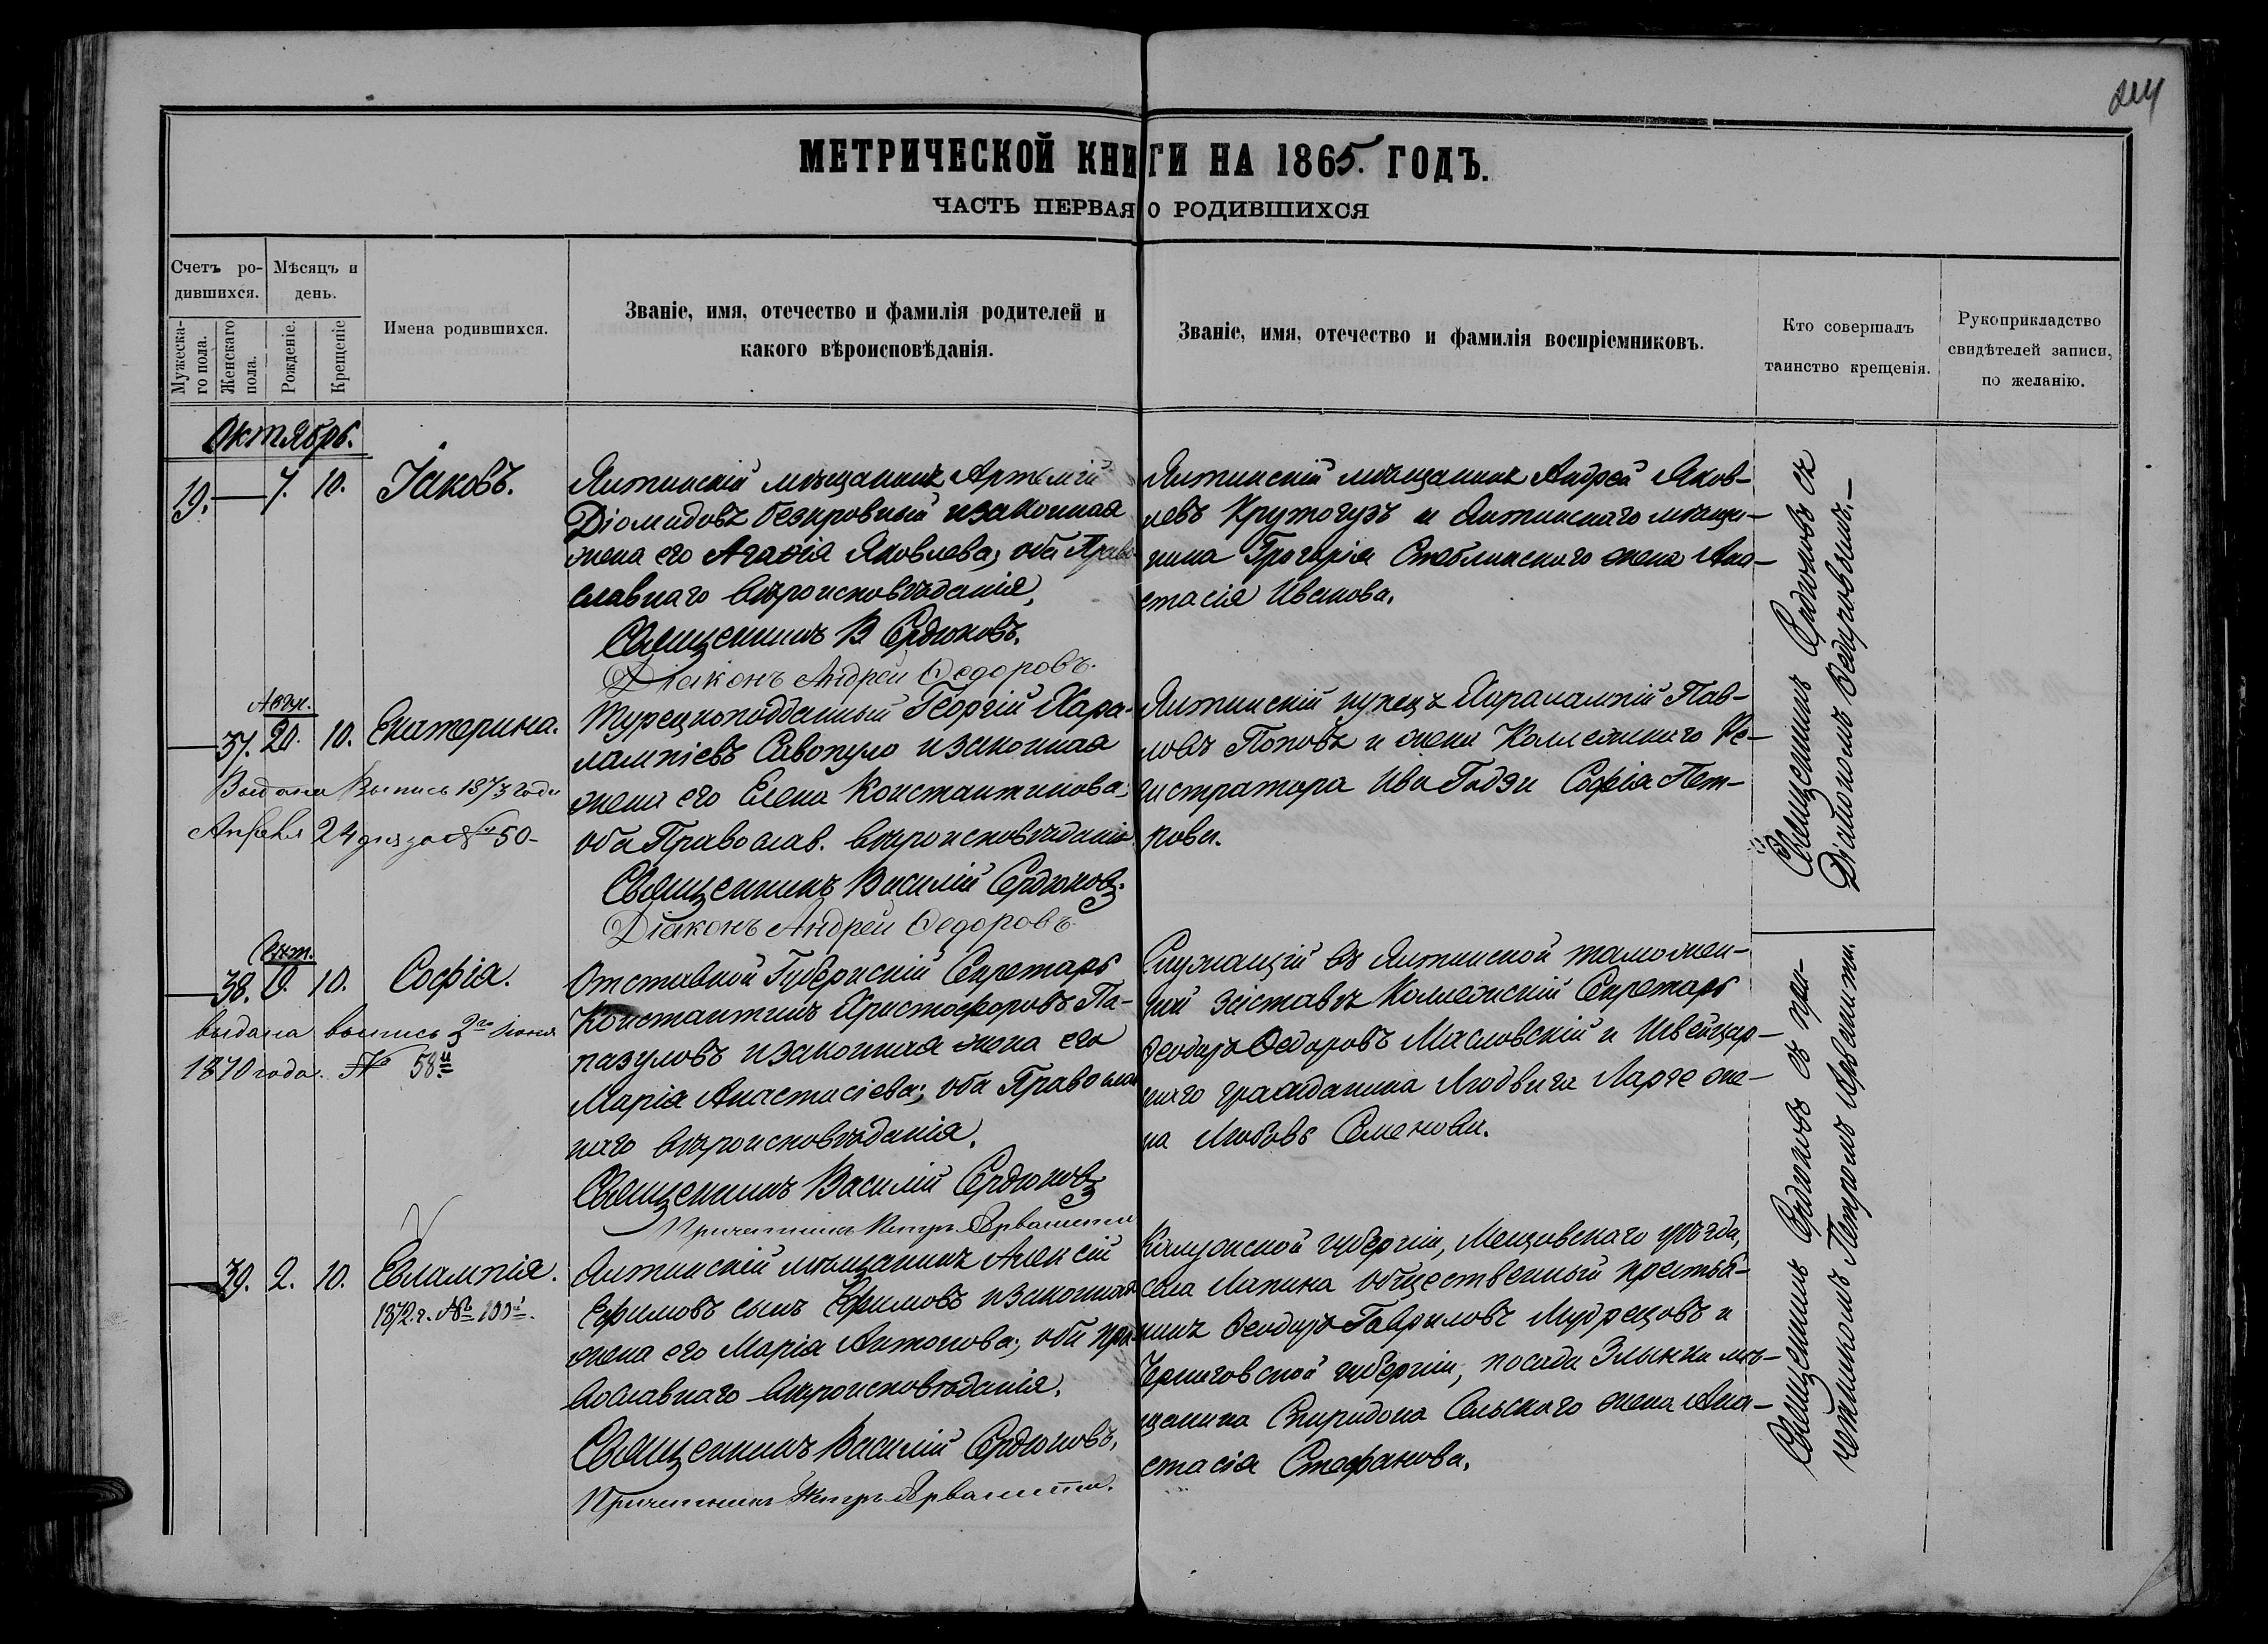 МЕТРИЧЕСКОЙ КНИГИ НА 1865. ГОДЪ.
ЧАСТЬ ПЕРВАЯ О РОДИВШИХСЯ
Счетъ ро-
дившихся.
Мужеска-
го пола.
Женскаго
пола.
Мѣсяцъ и
день.
Рожденіе.
Крещеніе
Имена родившихся.
Званіе, имя, отечество и фамилія родителей и
какого вѣроисповѣданія.
Званіе, имя, отечество и фамилія воспріемниковъ.
Кто совершалъ
таинство крещенія.
Рукоприкладство
свидѣтелей записи,
по желанію.
Октябрь.
19. 7. 10. Іаковъ.
Ялтинскій мѣщанинъ Артемій
Діомидовъ Безкровный и законная
жена его Агафія Яковлева, оба Право-
славнаго вѣроисповѣданія,
Священникъ В Сердюковъ.
Діаконъ Андрей Ѳедоровъ.
Ялтинскій мѣщанинъ Андрей Яков-
левъ Крутогузъ и Ялтинскаго мѣща-
нина Григорія Стеблинскаго жена Ана-
стасія Иванова.
Авгус.
37. 20. 10. Екатерина.
Выдана Выпись 1873 года
Апрѣля 24 дня за № 50-
Турецкоподданный Георгій Хара-
лампіевъ Савопуло и законная
жена его Елена Константинова,
оба Православ. вѣроисповѣданія
Священникъ Василій Сердюковъ.
Діаконъ Андрей Ѳедоровъ
Ялтинскій купецъ Харалампій Пав-
ловъ Поповъ и жена Коллежскаго Ре-
гистратора Ива Годзи Софія Пет-
рова.
Священникъ Сердюковъ съ
Діакономъ Ѳедоровымъ.-
Сент.
38. 10. Софія.
выдана выпись 2го Іюня
1870 года. № 58й
Отставной Губернскій Секретарь
Константинъ Христофоровъ Па-
пазуловъ и законная жена его
Марія Анастасіева; оба Православ
наго вѣроисповѣданія.
Священникъ Василій Сердюковъ
Причетникъ Петръ
Служащій въ Ялтинской таможен-
ной заставѣ Коллежскій Секретарь
Ѳеодоръ Ѳедоровъ Масловскій и Швейцар-
скаго гражданина Людвига Ларге же-
на Любовь Семенова.
39. 2. 10. Евлампія.
1872. г. №
Ялтинскій мѣщанинъ Алексій
Ефимовъ сынъ Ефимовъ и законная
жена его Марія Антонова; оба Пра-
вославнаго вѣроисповѣданія.
Священникъ Василій Сердюковъ,
Причетникъ Петръ
Калужской губерніи, Мещовскаго уѣзда,
села Лапина общественный крестья-
нинъ Ѳеодоръ Гавриловъ Мудрецовъ и
Черниговской губерніи, посада Злынки мѣ-
щанина Спиридона Сельскаго жена Ана-
стасія Стефанова.
Священникъ Сердюковъ съ при-
четникомъ Петромъ